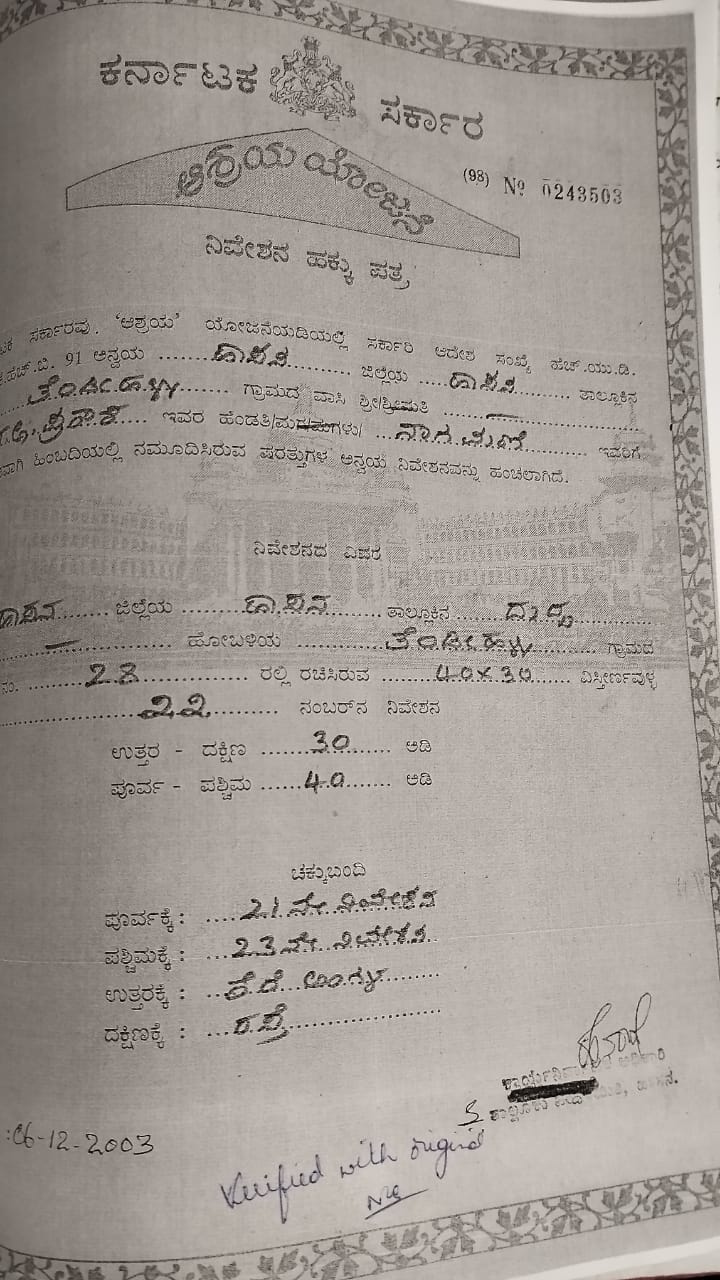 ಕರ್ನಾಟಕ ಸರ್ಕಾರ
ಆಶ್ರಯ ಯೋಜನೆ
(98) Nº 0243503
ನಿವೇಶನ ಹಕ್ಕು ಪತ್ರ
ಸರ್ಕಾರವು. 'ಆಶ್ರಯ' ಯೋಜನೆಯಡಿಯಲ್ಲಿ ಸರ್ಕಾರಿ ಆದೇಶ ಸಂಖ್ಯೆ ಹೆಚ್.ಯು.ಡಿ.
ಹೆಚ್.ಬಿ. 91 ಅನ್ವಯ ........ಹಾಸನ............ ಜಿಲ್ಲೆಯ ....ಹಾಸನ....... ತಾಲ್ಲೂಕಿನ
........ ಗ್ರಾಮದ ವಾಸಿ ಶ್ರೀ/ಶ್ರೀಮತಿ ......—......
ಪ್ರಕಾಶ..... ಇವರ ಹೆಂಡತಿ/ಮಗ/ಮಗಳು/ ....ನಾಗಮಣಿ.......... ಇವರಿಗೆ
ಹಿಂಬದಿಯಲ್ಲಿ ನಮೂದಿಸಿರುವ ಷರತ್ತುಗಳ ಅನ್ವಯ ನಿವೇಶನವನ್ನು ಹಂಚಲಾಗಿದೆ.
ನಿವೇಶನದ ವಿವರ
ಹಾಸನ....... ಜಿಲ್ಲೆಯ ..........ಹಾಸನ....... ತಾಲ್ಲೂಕಿನ ....ದುದ್ದ............
......—.............. ಹೋಬಳಿಯ ......................... ಗ್ರಾಮದ
ನಂ. ........28............... ರಲ್ಲಿ ರಚಿಸಿರುವ ........40x30...... ವಿಸ್ತೀರ್ಣವುಳ್ಳ
....................22.......... ನಂಬರ್‌ನ ನಿವೇಶನ
ಉತ್ತರ - ದಕ್ಷಿಣ .......30...... ಅಡಿ
ಪೂರ್ವ - ಪಶ್ಚಿಮ ......40....... ಅಡಿ
ಚಕ್ಕುಬಂದಿ
ಪೂರ್ವಕ್ಕೆ : ....21.ನೇ ನಿವೇಶನ
ಪಶ್ಚಿಮಕ್ಕೆ : ...23.ನೇ ನಿವೇಶನ..
ಉತ್ತರಕ್ಕೆ : ..........
ದಕ್ಷಿಣಕ್ಕೆ : ...ರಸ್ತೆ....................
:06-12-2003
Verified with original